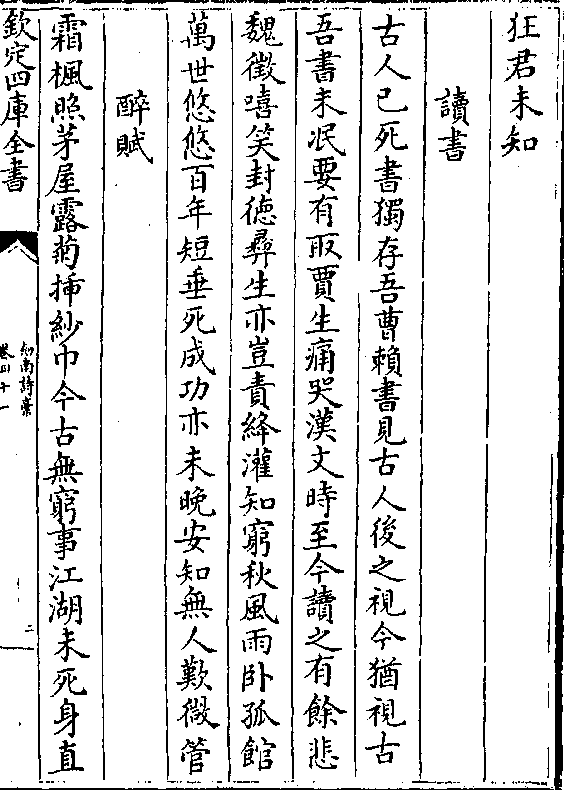 狂君未知
讀書
古人已死書獨存吾曹賴書見古人後之視今猶視古
吾書未泯要有取賈生痛哭漢文時至今讀之有餘悲
魏徵嘻笑封德彞生亦豈責絳灌知窮秋風雨卧孤館
萬世悠悠百年短垂死成功亦未晚安知無人歎微管
醉賦
霜楓照茅屋露菊揷紗巾今古無窮事江湖未死身直
欽定四庫全書
劍南詩稾
卷四十一
二